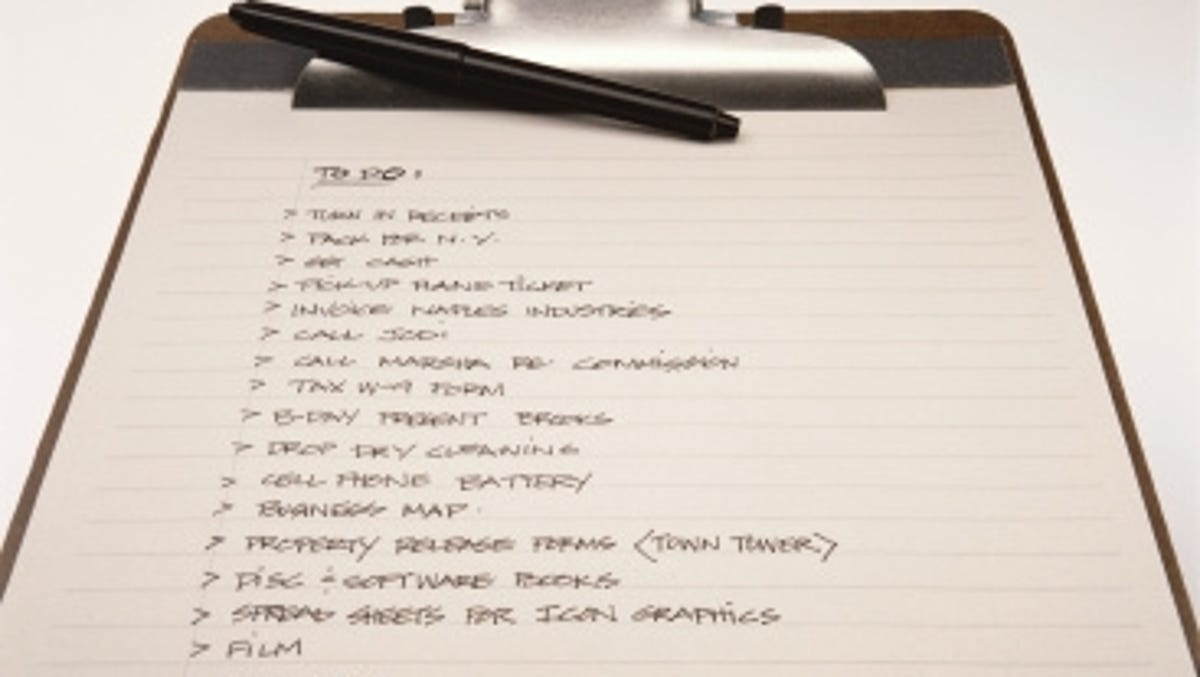 TO DO:
> TURN IN RECEIPTS
> PACK FOR N.Y.
> GET CASH
> PICK-UP PLANE TICKET
> INVOICE NAPLES INDUSTRIES
> CALL JODI
> CALL MARSHA RE COMMISSION
> TAX W-9 FORM
> B-DAY PRESENT BROOKS
> DROP DRY CLEANING
> CELL PHONE BATTERY
> BUSINESS MAP
> PROPERTY RELEASE FORMS <TOWN TOWER>
> DISC & SOFTWARE BOOKS
> SPREAD SHEETS FOR ICON GRAPHICS
> FILM